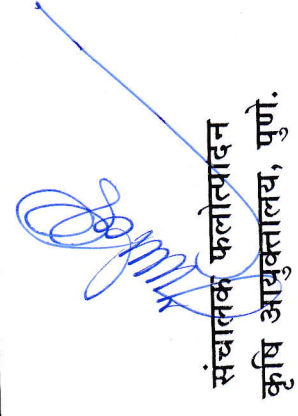 संचालक फलोत्पादन
कृषि आयुक्तालय, पुणे.